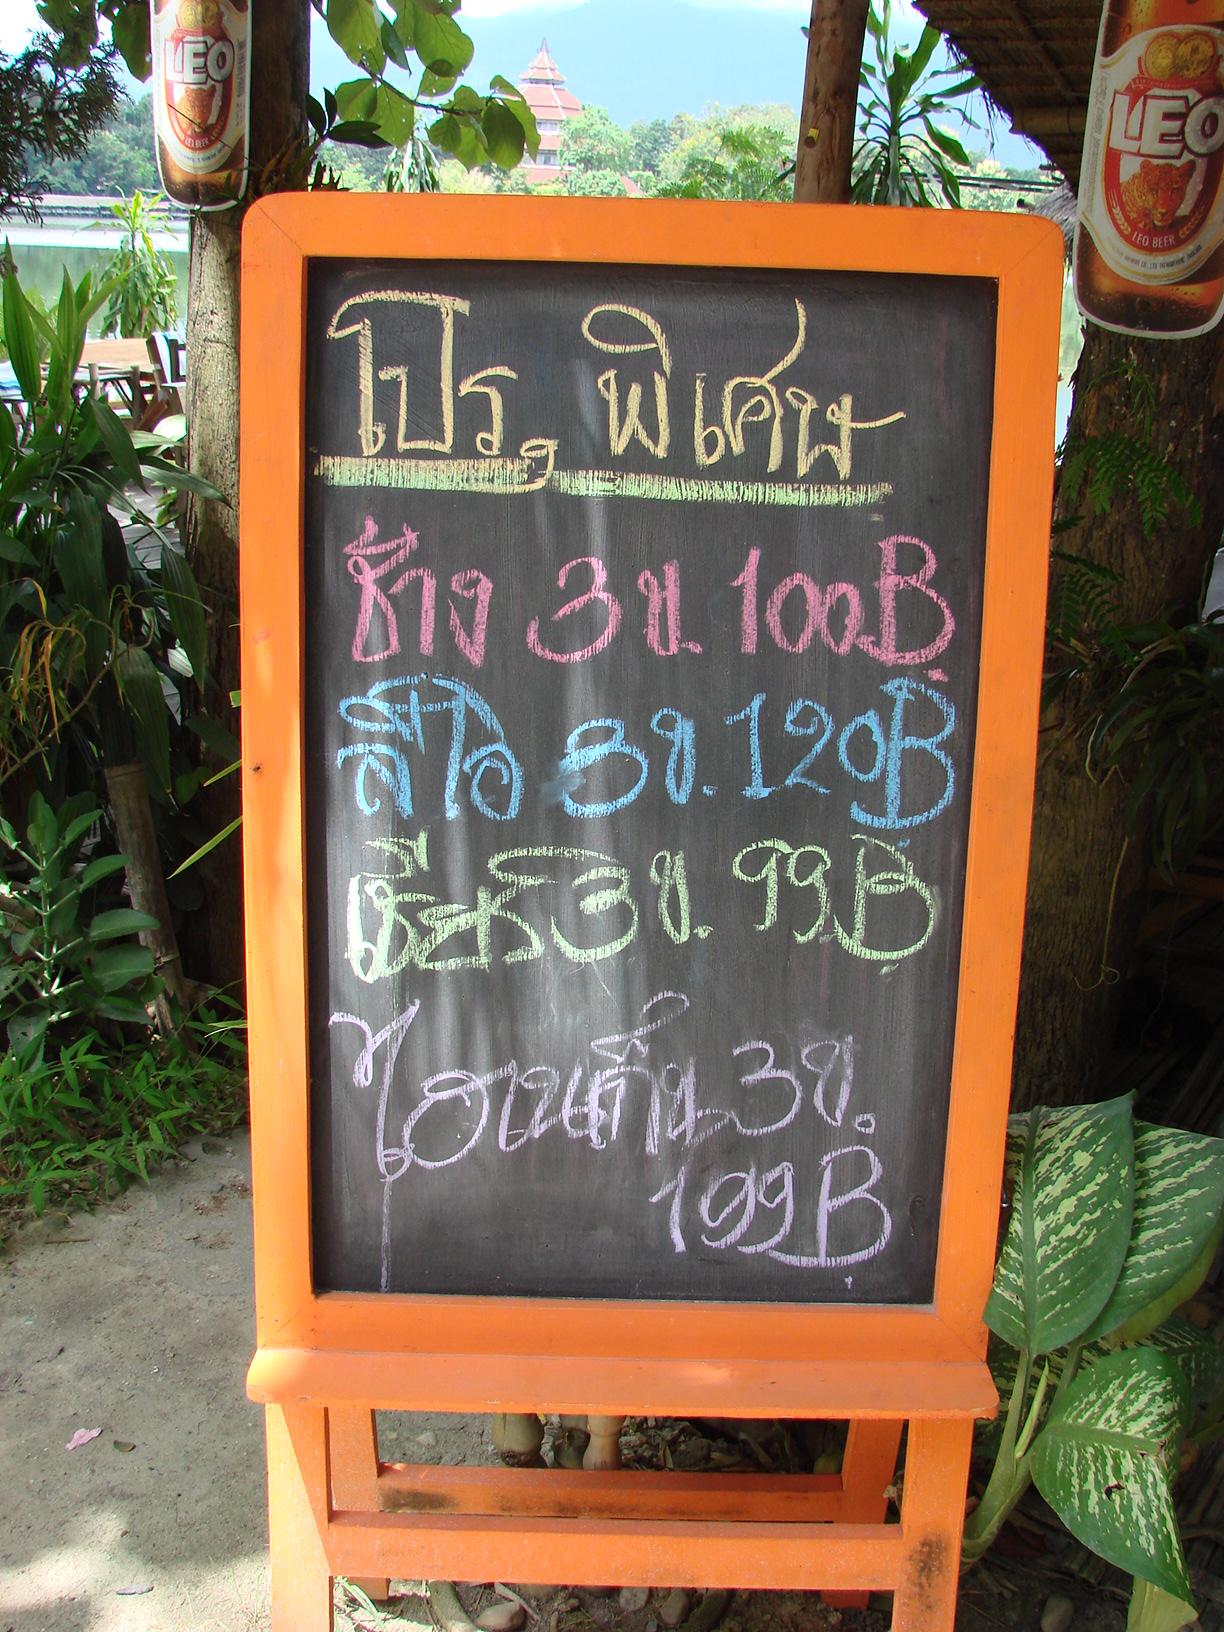 LEO
LEO BEER
LEO
LEO BEER
โปรฯ พิเศษ
ช้าง 3 ข. 100B
ลีโอ 3 ข. 120B
เชียร์ 3 ข. 99B
ไฮเนเก้น 3 ข.
199B